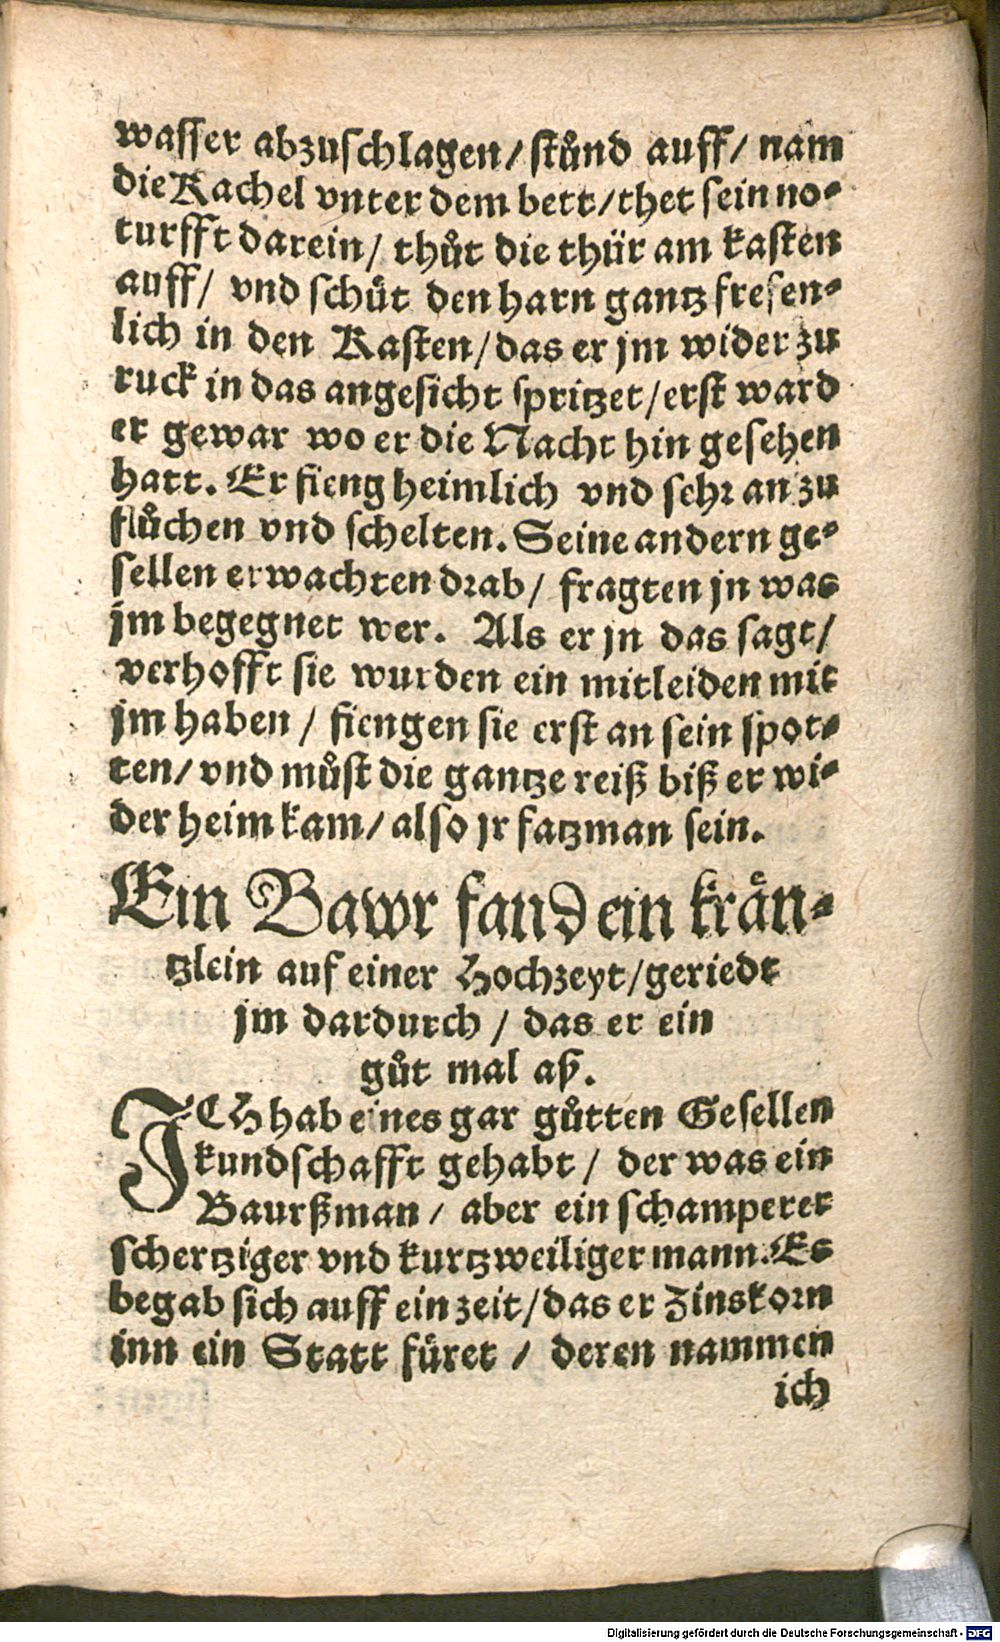 wasser abzuschlagen/ stůnd auff/ nam
die Kachel vnter dem bett/ thet sein no-
turfft darein/ thůt die thür am kasten
auff/ vnd schüt den harn gantz fresen-
lich in den Kasten/ das er jm wider zu
ruck in das angesicht spritzet/ erst ward
er gewar wo er die Nacht hin gesehen
hatt. Er fieng heimlich vnd sehr an zu
flůchen vnd schelten. Seine andern ge-
sellen erwachten drab/ fragten jn was
jm begegnet wer. Als er jn das sagt/
verhofft sie wurden ein mitleiden mit
jm haben / fiengen sie erst an sein spot-
ten/ vnd můst die gantze reiß biß er wi-
der heim kam/ also jr fatzman sein.
Ein Bawr fand ein krän-
tzlein auf einer Hochzeyt/ geriedt
jm dardurch / das er ein
gůt mal aß.
ICH hab eines gar gůtten Gesellen
kundschafft gehabt / der was ein
Baurßman / aber ein schamperer
schertziger vnd kurtzweiliger mann. Es
begab sich auff ein zeit/ das er Zinskorn
inn ein Statt füret / deren nammen
ich
Digitalisierung gefördert durch die Deutsche Forschungsgemeinschaft - DFG